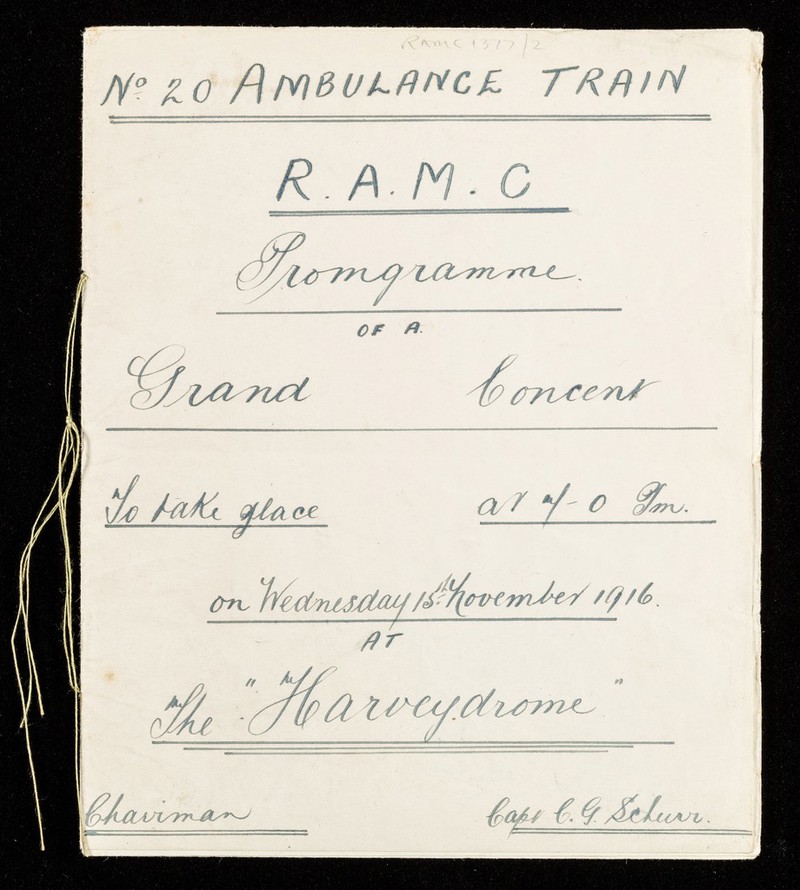 RAMC 1317/2
No. 20 AMBULANCE TRAIN
R. A. M. C
Promgramme.
OF A.
Grand Concert
To take place at 7-0 Pm.
on Wednesday 15th November 1916.
AT
The "Harveydrome"
Chairman Capt C. G. Schurr.